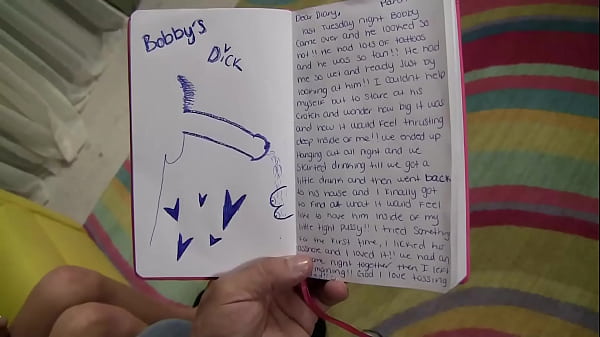 Bobby's
Dick
Dear Diary,
last Tuesday night Bobby
came over and he looked so
hot!! He had lots of tattoos
and he was so tan!! He had
me so wet and ready just by
looking at him!! I couldnt help
myself but to stare at his
crotch and wonder how big it was
and how it would feel thrusting
deep inside of me!! We ended up
hanging out all night and we
started drinking till we got a
little drunk and then went back
to his house and I finally got
to find out what it would feel
like to have him inside of my
little tight pussy!! I tried something
for the first time, I licked his
asshole and I loved it!! we had an
night together then I left
morning!! God I love tossing